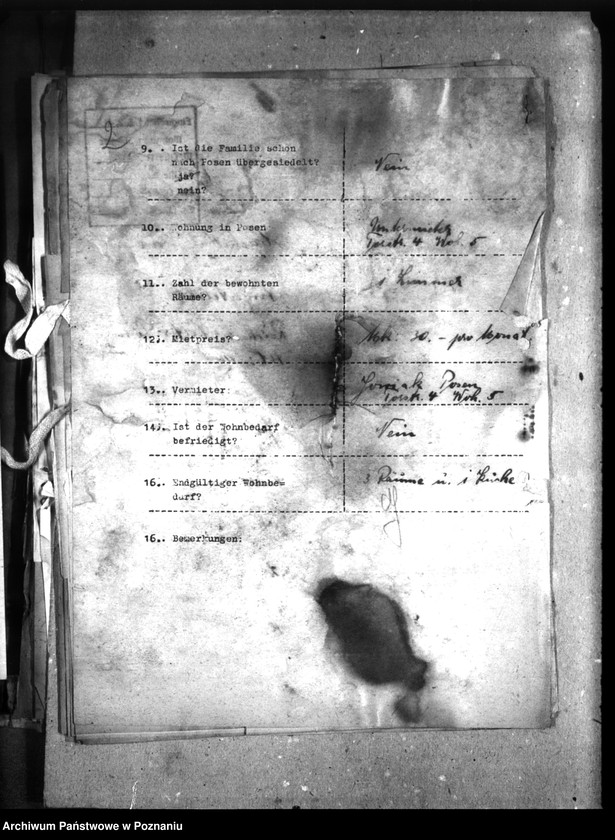 2
9. . Ist die Familie schon
nach Posen übergesiedelt?
ja?
nein?
Nein
10.. Wohnung in Posen
Torstr. 4 Woh. 5
11.. Zahl der bewohnten
Räume?
1 Zimmer
12.. Mietpreis?
Mk. 30.- pro Monat
13.. Vermieter:
Posen
Torstr. 4 Woh. 5
14.. Ist der Wohnbedarf
befriedigt?
Nein
16.. Endgültiger Wohnbe=
darf?
3 Räume u. 1 Küche
16.. Bemerkungen:
Archiwum Państwowe w Poznaniu